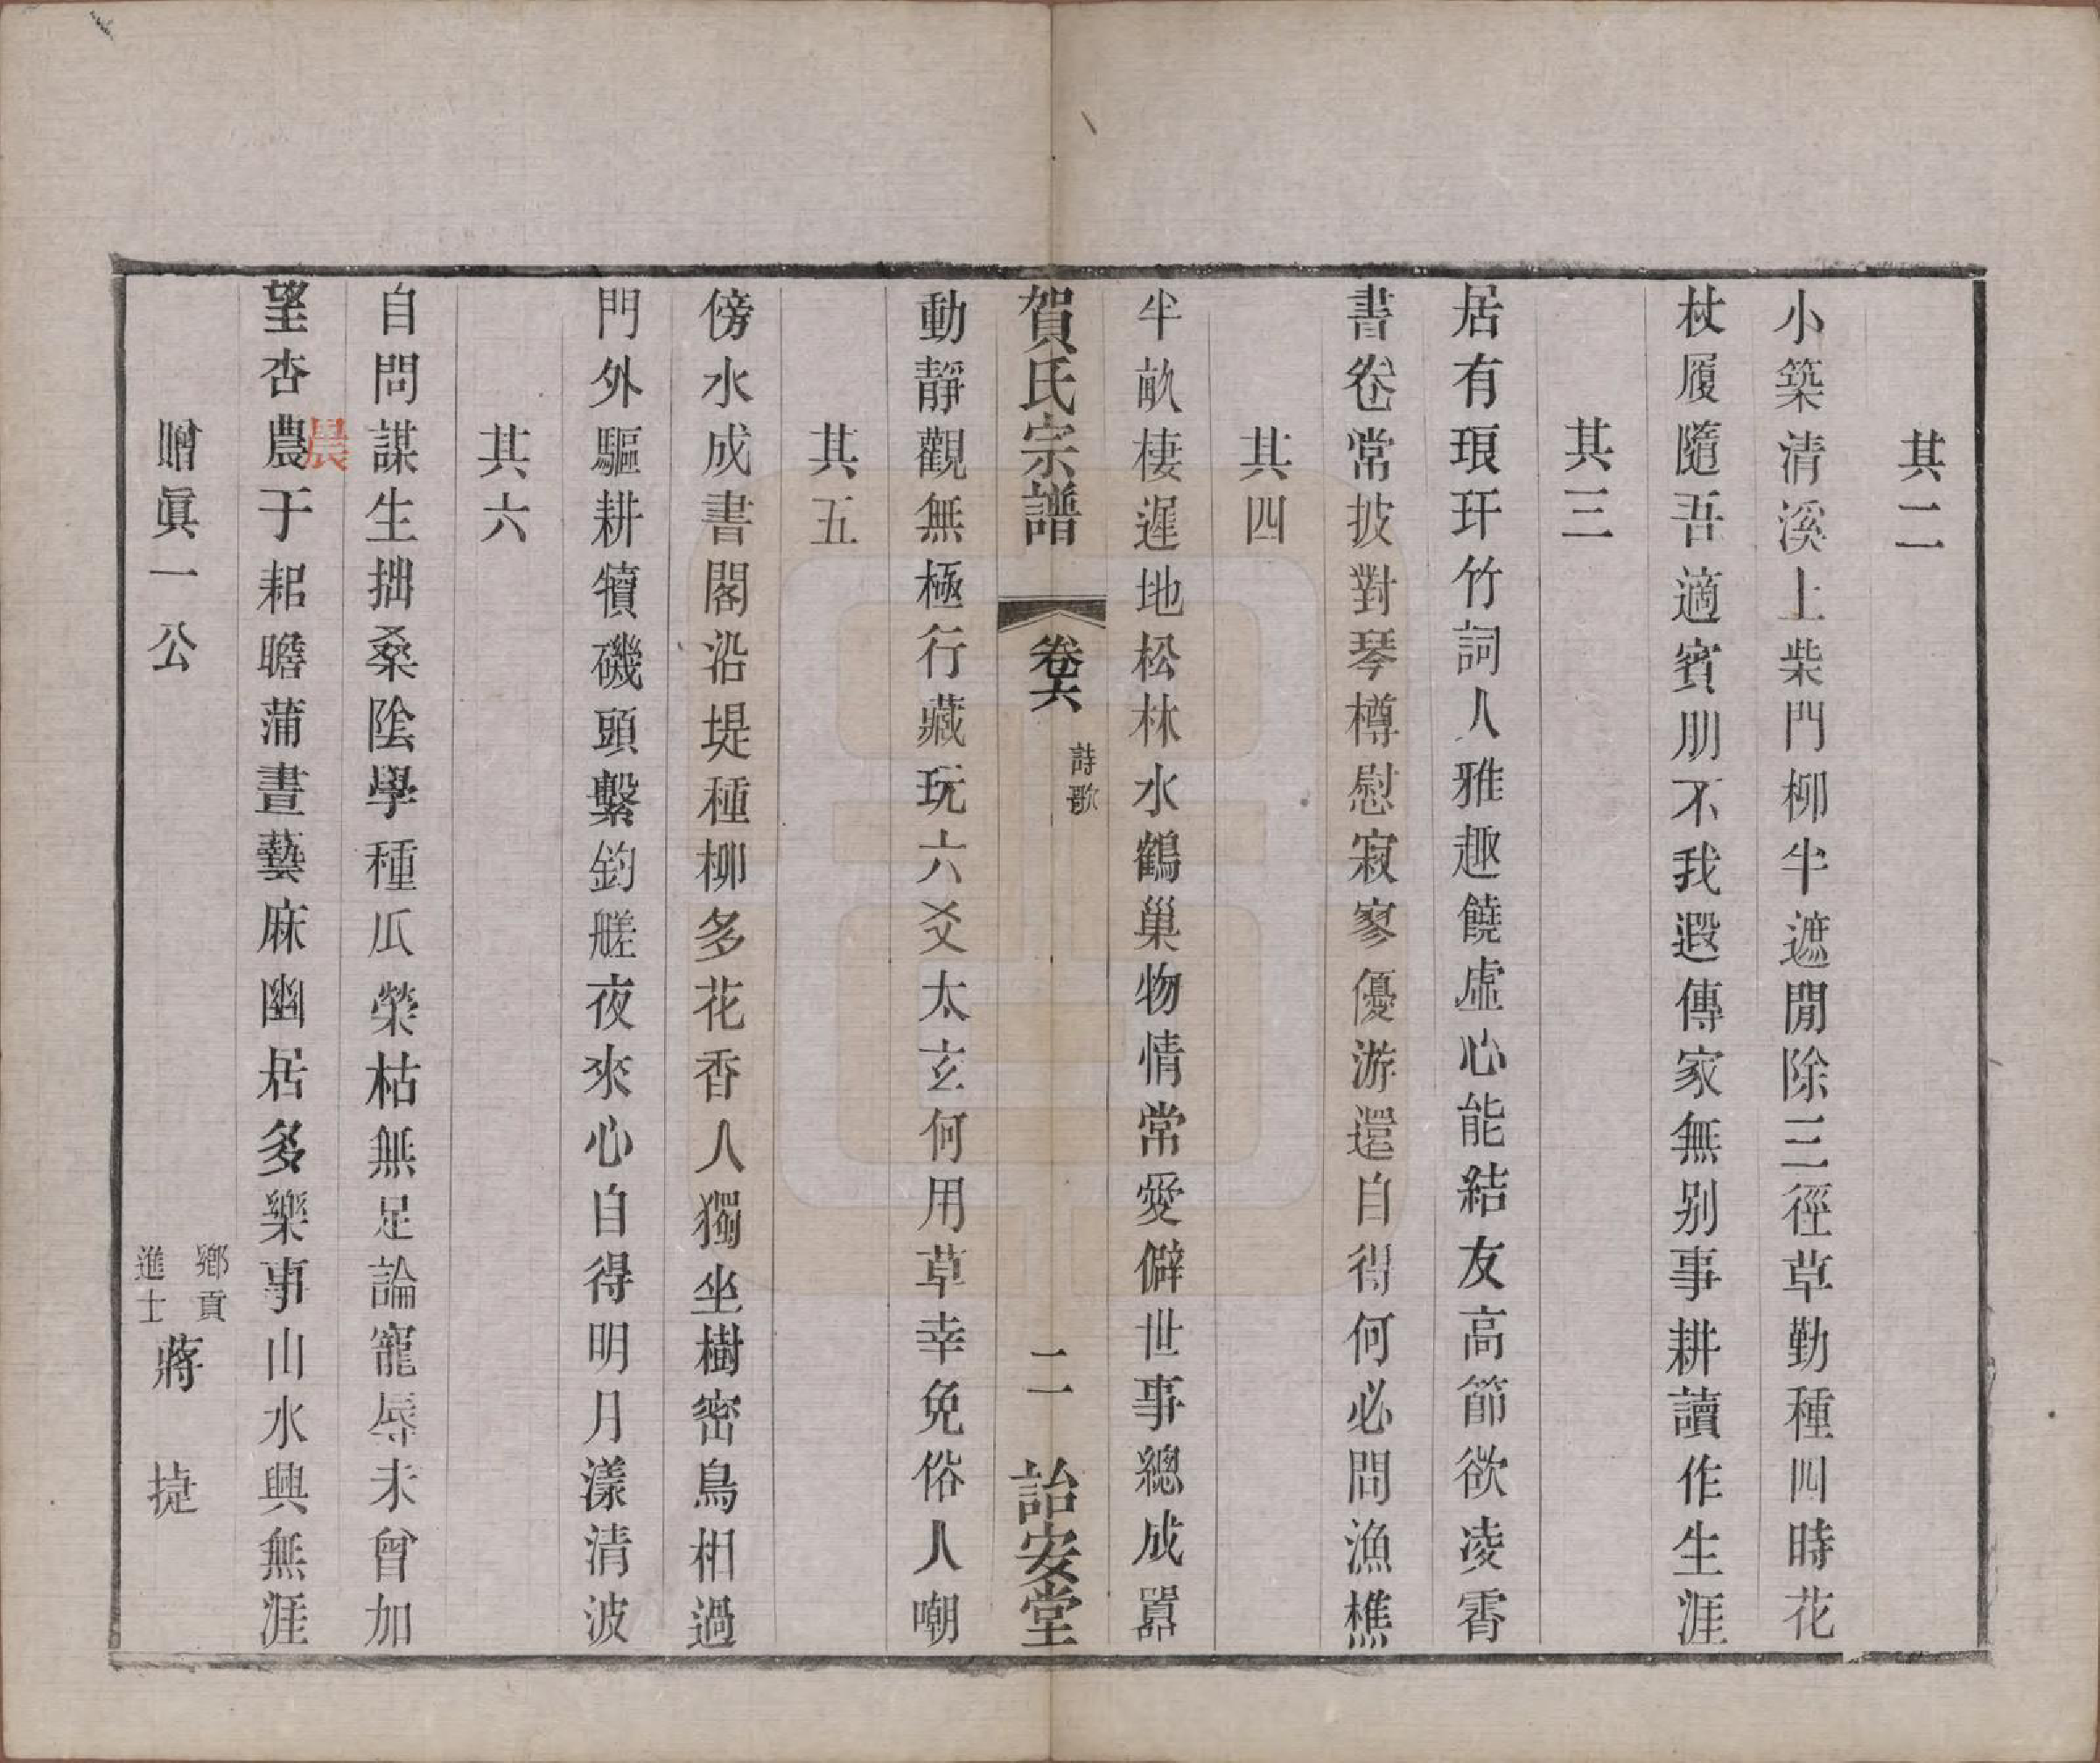 其二
小築清溪上柴門柳半遮閒除三徑草勤種四時花
杖履隨吾適賓朋不我遐傳家無别事耕讀作生涯
其三
居有琅玕竹詞人雅趣饒虛心能結友高節欲凌霄
書卷常披對琴樽慰寂寥優游還自得何必問漁樵
其四
半畝棲遲地松林水鶴巢物情常愛僻世事總成囂
賀氏宗譜 卷六 詩歌 二 詒安堂
動靜觀無極行藏玩六爻太玄何用草幸免俗人嘲
其五
傍水成書閣沿堤種柳多花香人獨坐樹密鳥相過
門外驅耕犢磯頭繫釣艖夜來心自得明月漾清波
其六
自問謀生拙桑陰學種瓜榮枯無足論寵辱未曾加
晨
望杏農于耜瞻蒲晝藝麻幽居多樂事山水興無涯
贈眞一公 鄉貢進士 蔣捷